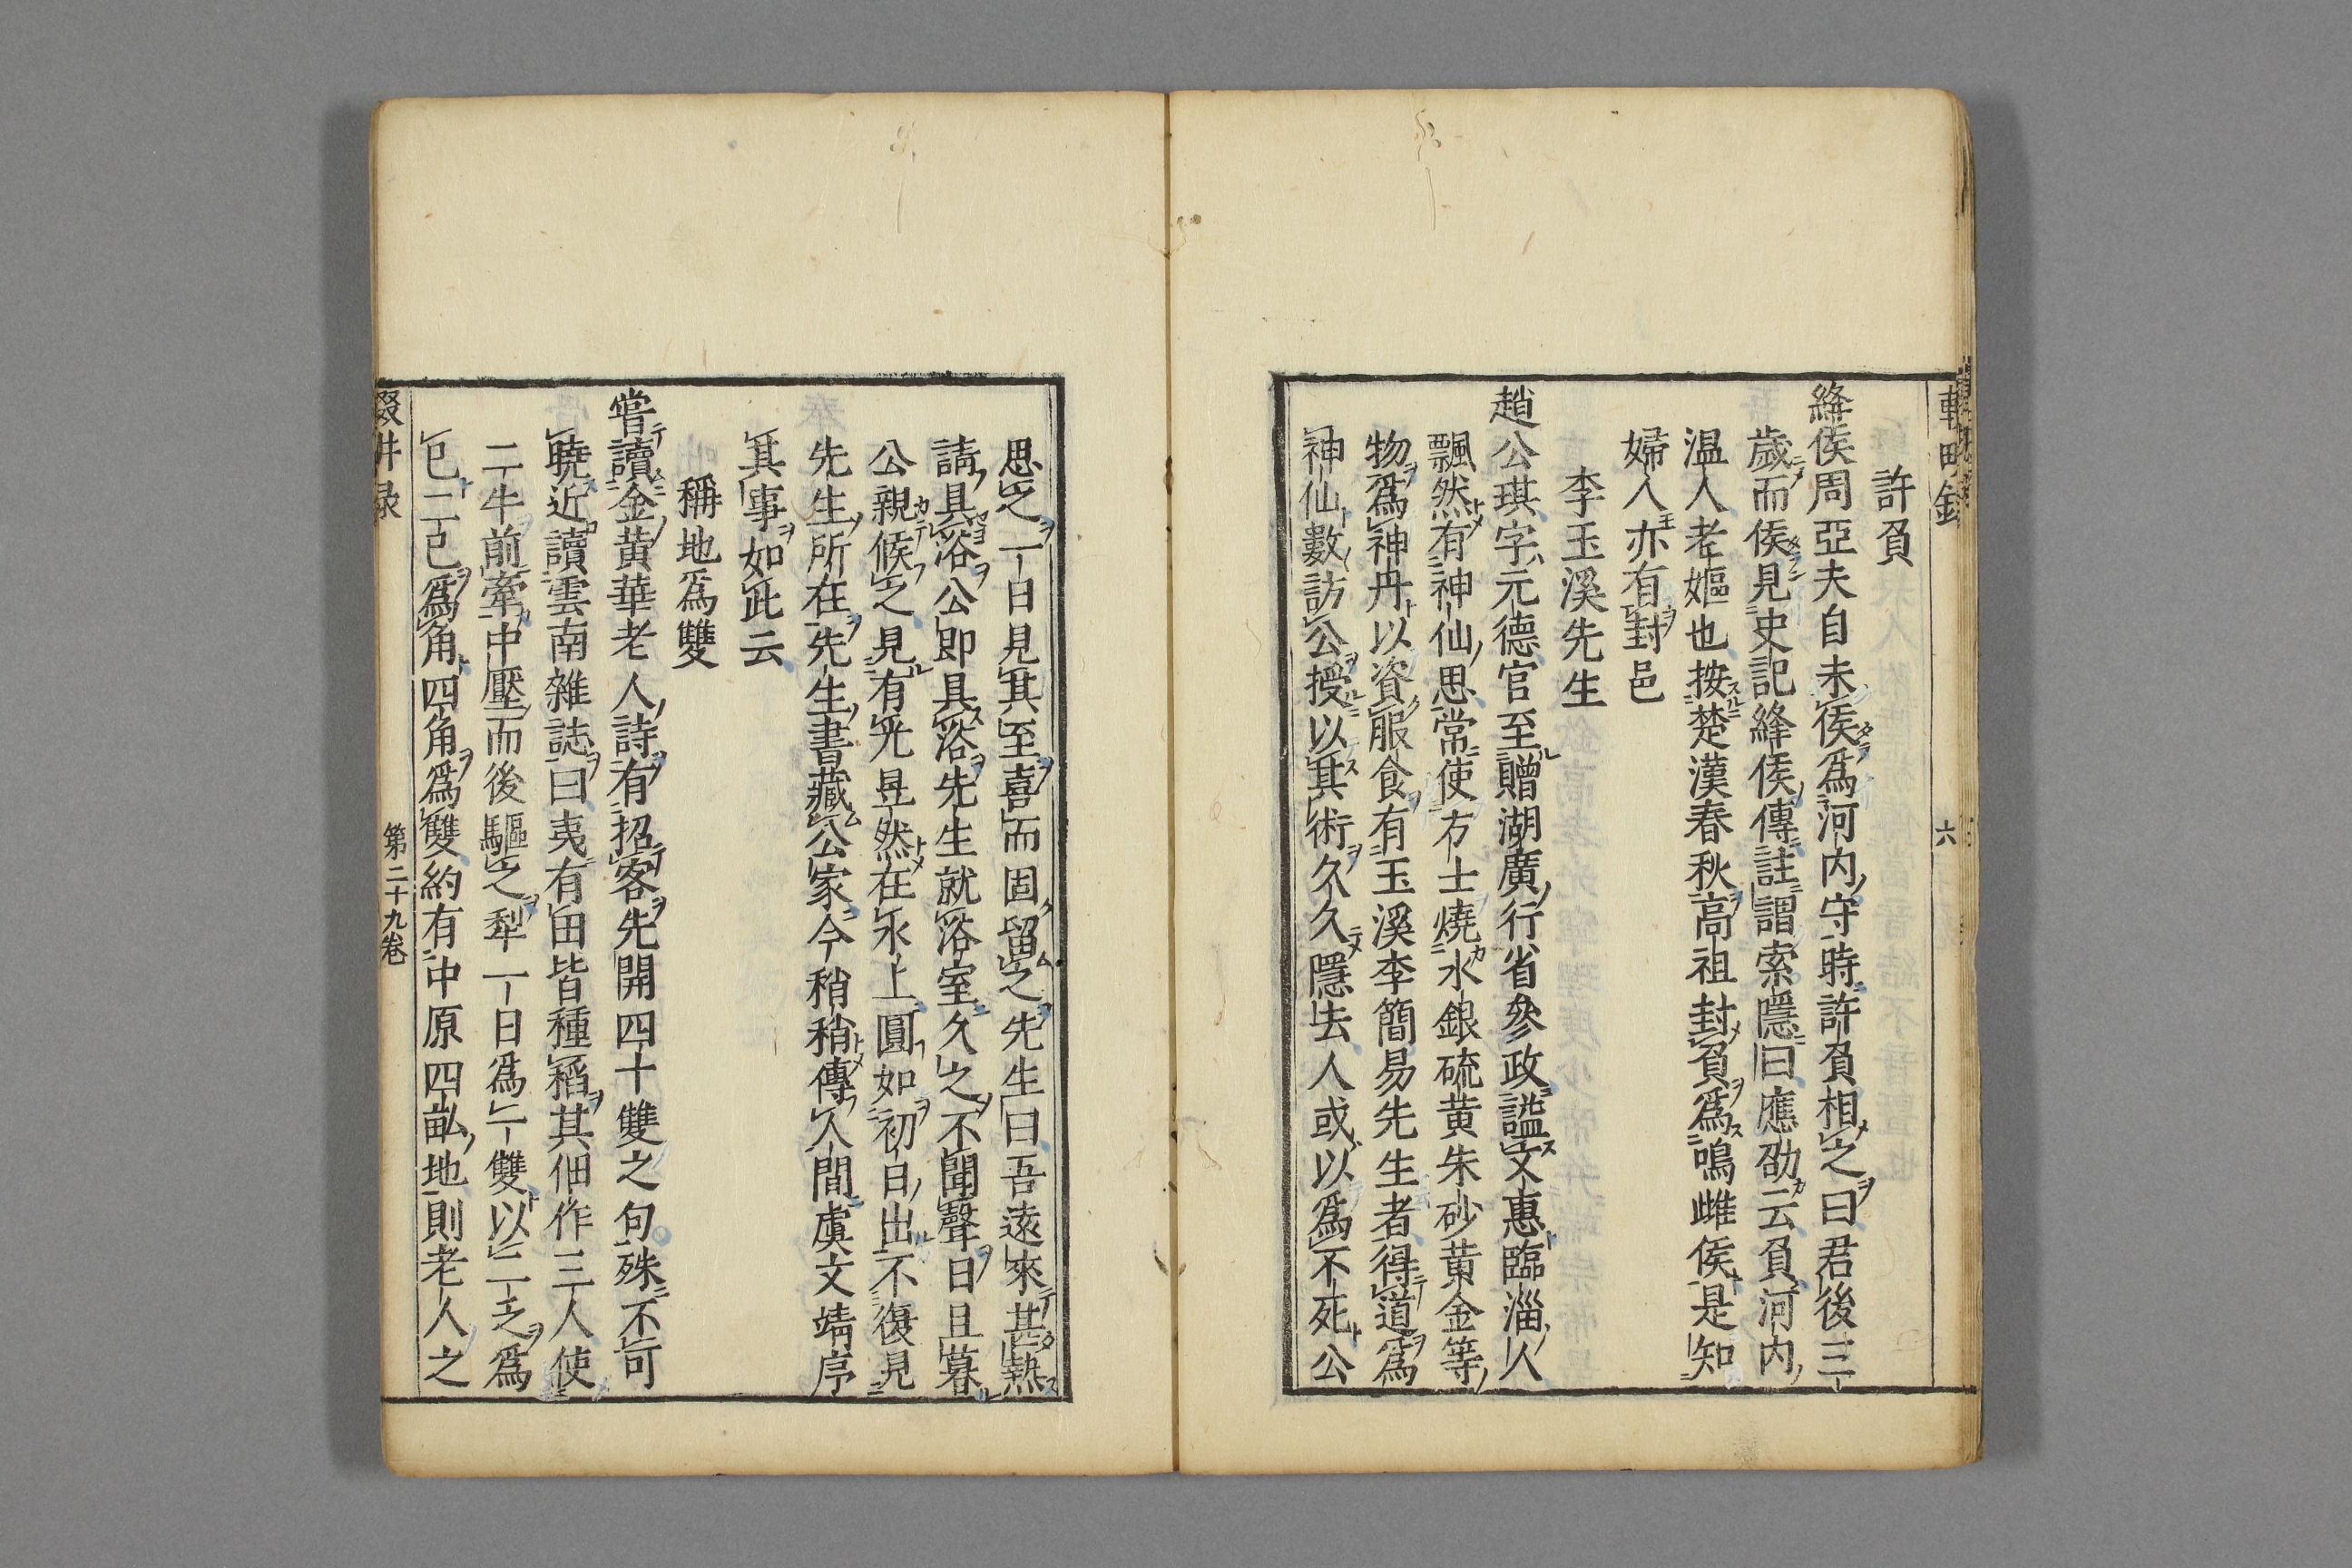 六
許負
絳侯周亞夫自未侯爲河内守時許負相之曰君後三
歳而侯見史記絳侯傳註謂索隱曰應劭云負河内
温人老嫗也按楚漢春秋高祖封負爲鳴雌侯是知
婦人亦有封邑
李玉溪先生
趙公琪字元德官至贈湖廣行省參政謚文惠臨淄人
飄然有神仙思常使方士燒水銀硫黄朱砂黄金等
物爲神丹以資服食有玉溪李簡易先生者得道爲
神仙數訪公授以其術久久隱去人或以爲不死公
思之一日見其至喜而固留之先生曰吾遠來甚熱
請具浴公即具浴先生就浴室久之不聞聲日且暮
公親候之見有光晃然在水上圓如初日出不復見
先生所在先生書藏公家今稍稍傳人間虞文靖序
其事如此云
稱地爲雙
嘗讀金黄華老人詩有招客先開四十雙之句殊不可
曉近讀雲南雜誌曰夷有田皆種稻其佃作三人使
二牛前牽中壓而後驅之犁一日爲一雙以二乏爲
已二已爲角四角爲雙約有中原四畝地則老人之
第二十九卷